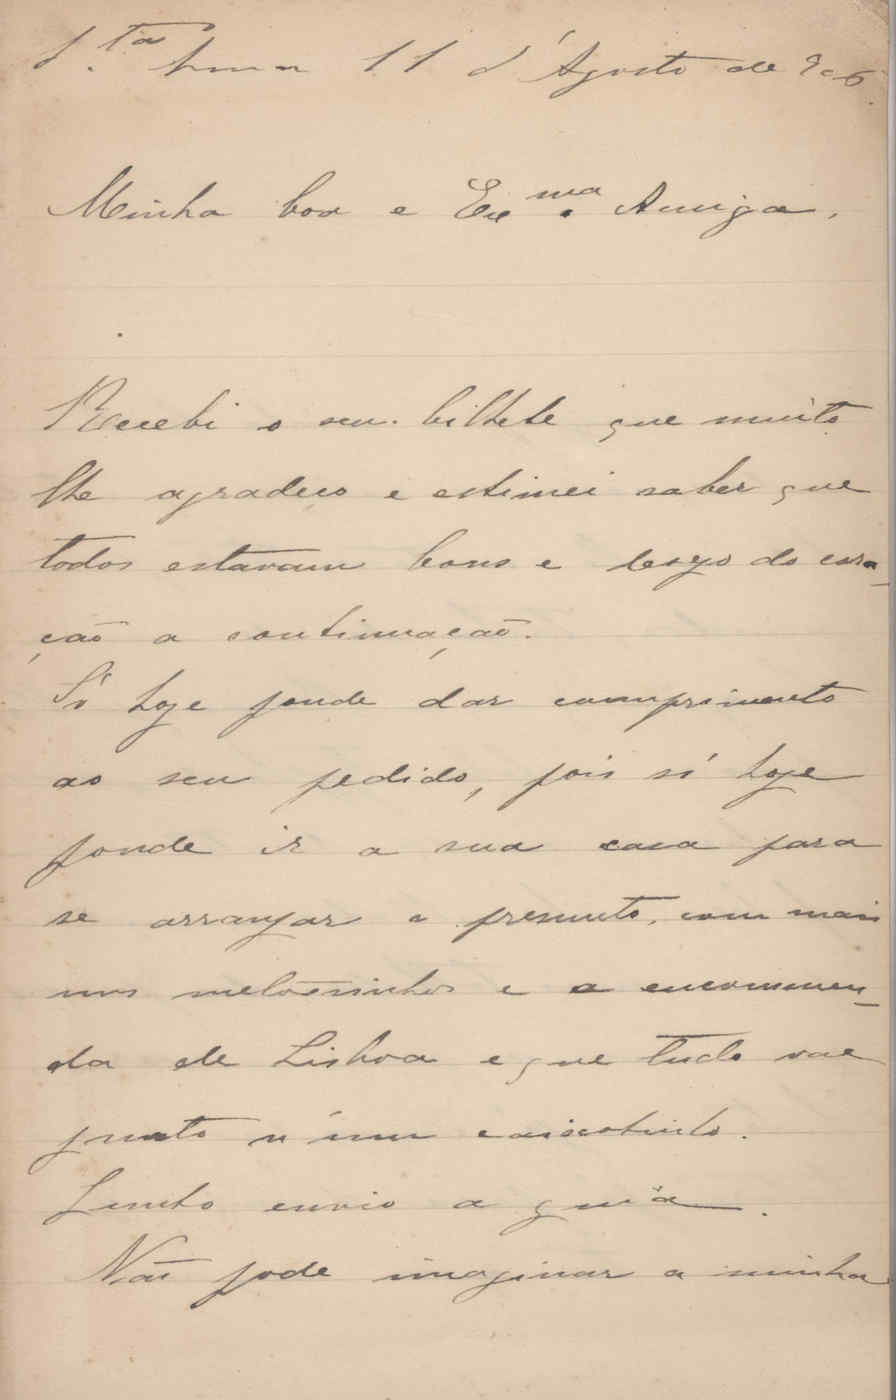 S.ta Anna 11 d'Agosto de 906.
Minha boa e Exc.ma Amiga,
Recebi o seu bilhete que muito
lhe agradeço e estimei saber que
todos estavam bons e desejo do cora-
ção a continuação.
Só hoje poude dar comprimento
ao seu pedido, pois só hoje
poude ir a sua casa para
se arranjar o presunto, com mais
uns melõesinhos e a encommen-
da de Lisboa e que tudo vae
junto n'um caixotinho.
Junto envio a guia.
Não pode imaginar a minha